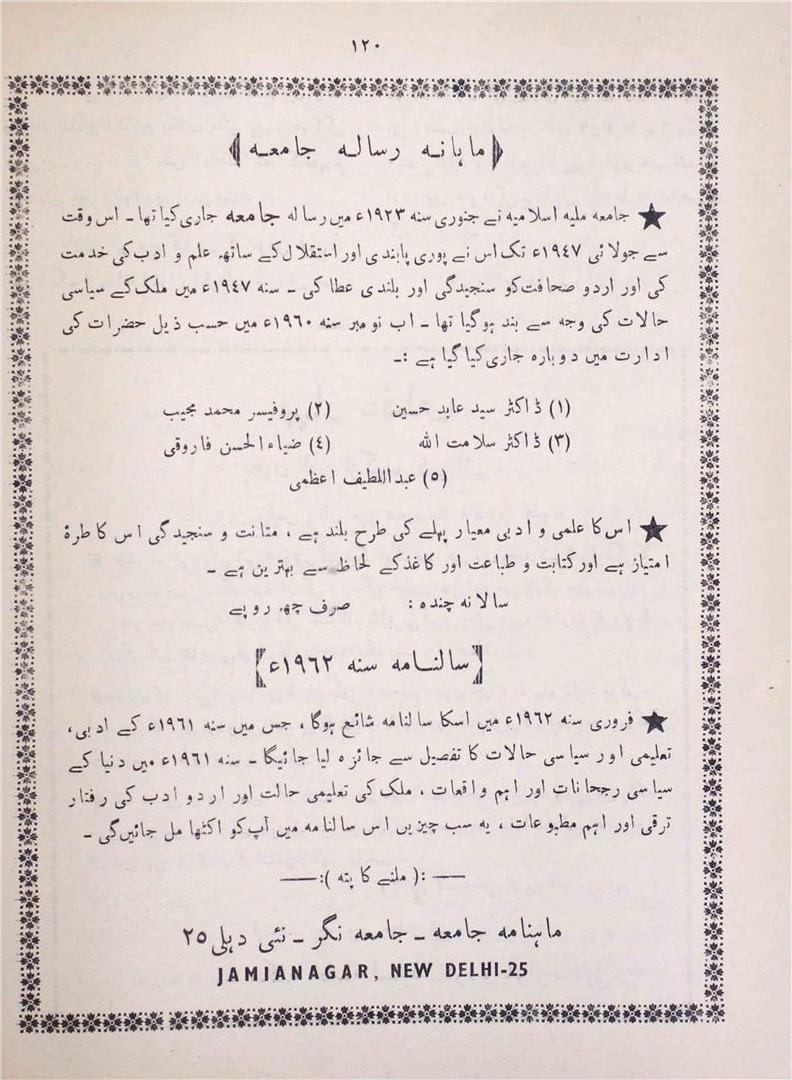 ۱۲۰
ماہانہ رسالہ جامعہ
★ جامعہ ملیہ اسلامیہ نے جنوری سنہ ۱۹۲۳ء میں رسالہ جامعہ جاری کیا تھا ـ اس وقت
سے جولائی ۱۹٤۷ء تک اس نے پوری پابندی اور استقلال کے ساتھ علم و ادب کی خدمت
کی اور اردو صحافت کو سنجیدگی اور بلندی عطا کی ـ سنہ ۱۹٤۷ء میں ملک کے سیاسی
حالات کی وجہ سے بند ہوگیا تھا ـ اب نومبر سنہ ۱۹٦۰ء میں حسب ذیل حضرات کی
ادارت میں دوبارہ جاری کیا گیا ہے :ـ
(۱) ڈاکٹر سید عابد حسین (۲) پروفیسر محمد مجیب
(۳) ڈاکٹر سلامت اللہ (٤) ضیاء الحسن فاروقی
(٥) عبداللطیف اعظمی
★ اس کا علمی و ادبی معیار پہلے کی طرح بلند ہے ، متانت و سنجیدگی اس کا طرۂ
امتیاز ہے اور کتابت و طباعت اور کاغذ کے لحاظ سے بہترین ہے ـ
سالانہ چندہ : صرف چھ روپے
سالنامہ سنہ ۱۹٦۲ء
★ فروری سنہ ۱۹٦۲ء میں اسکا سالنامہ شائع ہوگا ، جس میں سنہ ۱۹٦۱ء کے ادبی،
تعلیمی اور سیاسی حالات کا تفصیل سے جائزہ لیا جائیگا ـ سنہ ۱۹٦۱ء میں دنیا کے
سیاسی رجحانات اور اہم واقعات ، ملک کی تعلیمی حالت اور اردو ادب کی رفتار
ترقی اور اہم مطبوعات ، یہ سب چیزیں اس سالنامہ میں آپ کو اکٹھا مل جائیں گی ـ
—— :( ملنے کا پتہ ): ——
ماہنامہ جامعہ ـ جامعہ نگر ـ نئی دہلی ۲٥
JAMIANAGAR, NEW DELHI-25